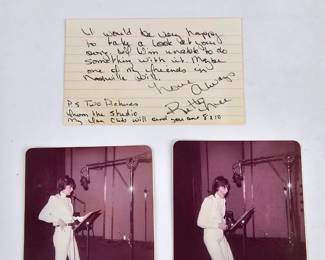 I would be very happy
to take a look at your
song. If I'm unable to do
something with it. Maybe
one of my friends in
Nashville will.
Love Always
P.S Two Pictures
from the Studio.
My Fan Club will send you one 8x10